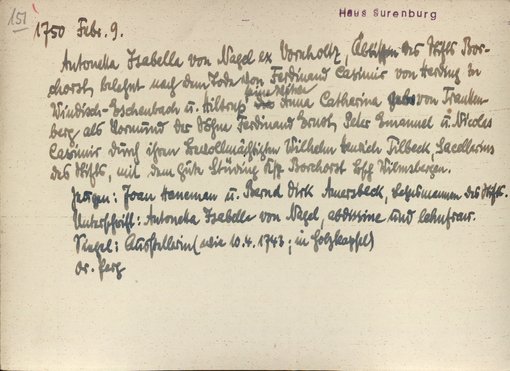 151
Haus Surenburg
1750 Febr. 9.
Antonetta Isabella von Nagel ex Vornholtz, Äbtissin des Stifts Bor-
chorst, belehnt nach dem Tode von Ferdinand Casimir von Herding zu
Windisch-Eschenbach u. Hiltrup seine Witwe Anna Catharina geb. von Franken-
berg als Vormund der Söhne Ferdinand Ernst, Peter Emanuel u. Nicolas
Casimir durch ihren Bevollmächtigten Wilhelm Henrich Tilbeck, Sacellanus
des Stifts, mit dem Gute Stüring Ksp Borchorst Bsch Wilmsbergen.
Zeugen: Joan Haneman u. Bernd Dirk Amersbeck, Lehnsmannen des Stifts.
Unterschrift: Antoneta Isabella von Nagel, abdissine und Lehnfraw.
Siegel: Ausstellerin (wie 10.4.1743; in Holzkapsel)
Or. Perg